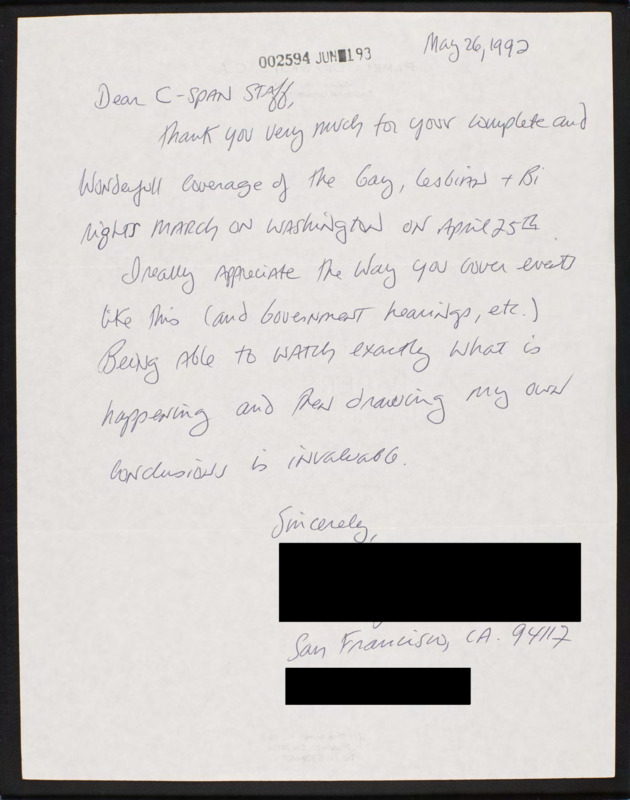 002594 JUN 193
May 26, 1992
Dear C-SPAN Staff,
Thank you very much for your complete and
Wonderfull coverage of the Gay, Lesbian + Bi
rights MARCH ON WAShingtON ON April 25th
I really Appreciate the Way you cover events
like this (and Government hearings, etc.)
Being Able to WATCH exactly what is
happening and then drawing my own
conclusions is invaluable.
Sincerely,
San Francisco, CA. 94117